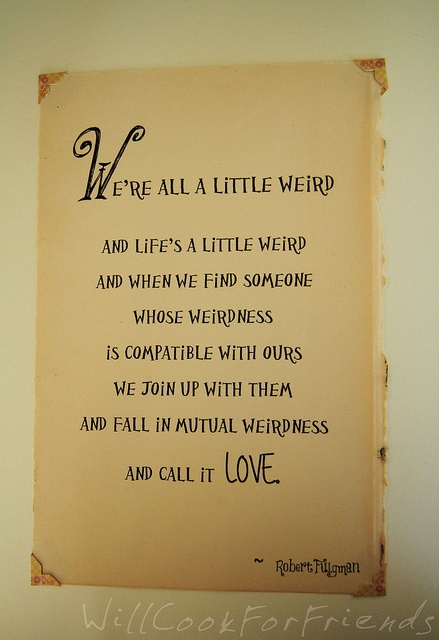 WE'RE ALL A LiTTLE WEiRD
AND LiFE'S A LiTTLE WEiRD
AND WHEN WE FiND SOMEONE
WHOSE WEiRDNESS
iS COMPATiBLE WiTH OURS
WE JOiN UP WiTH THEM
AND FALL iN MUTUAL WEiRDNESS
AND CALL iT LOVE.
~ Robert Fulgman
WillCookForFriends